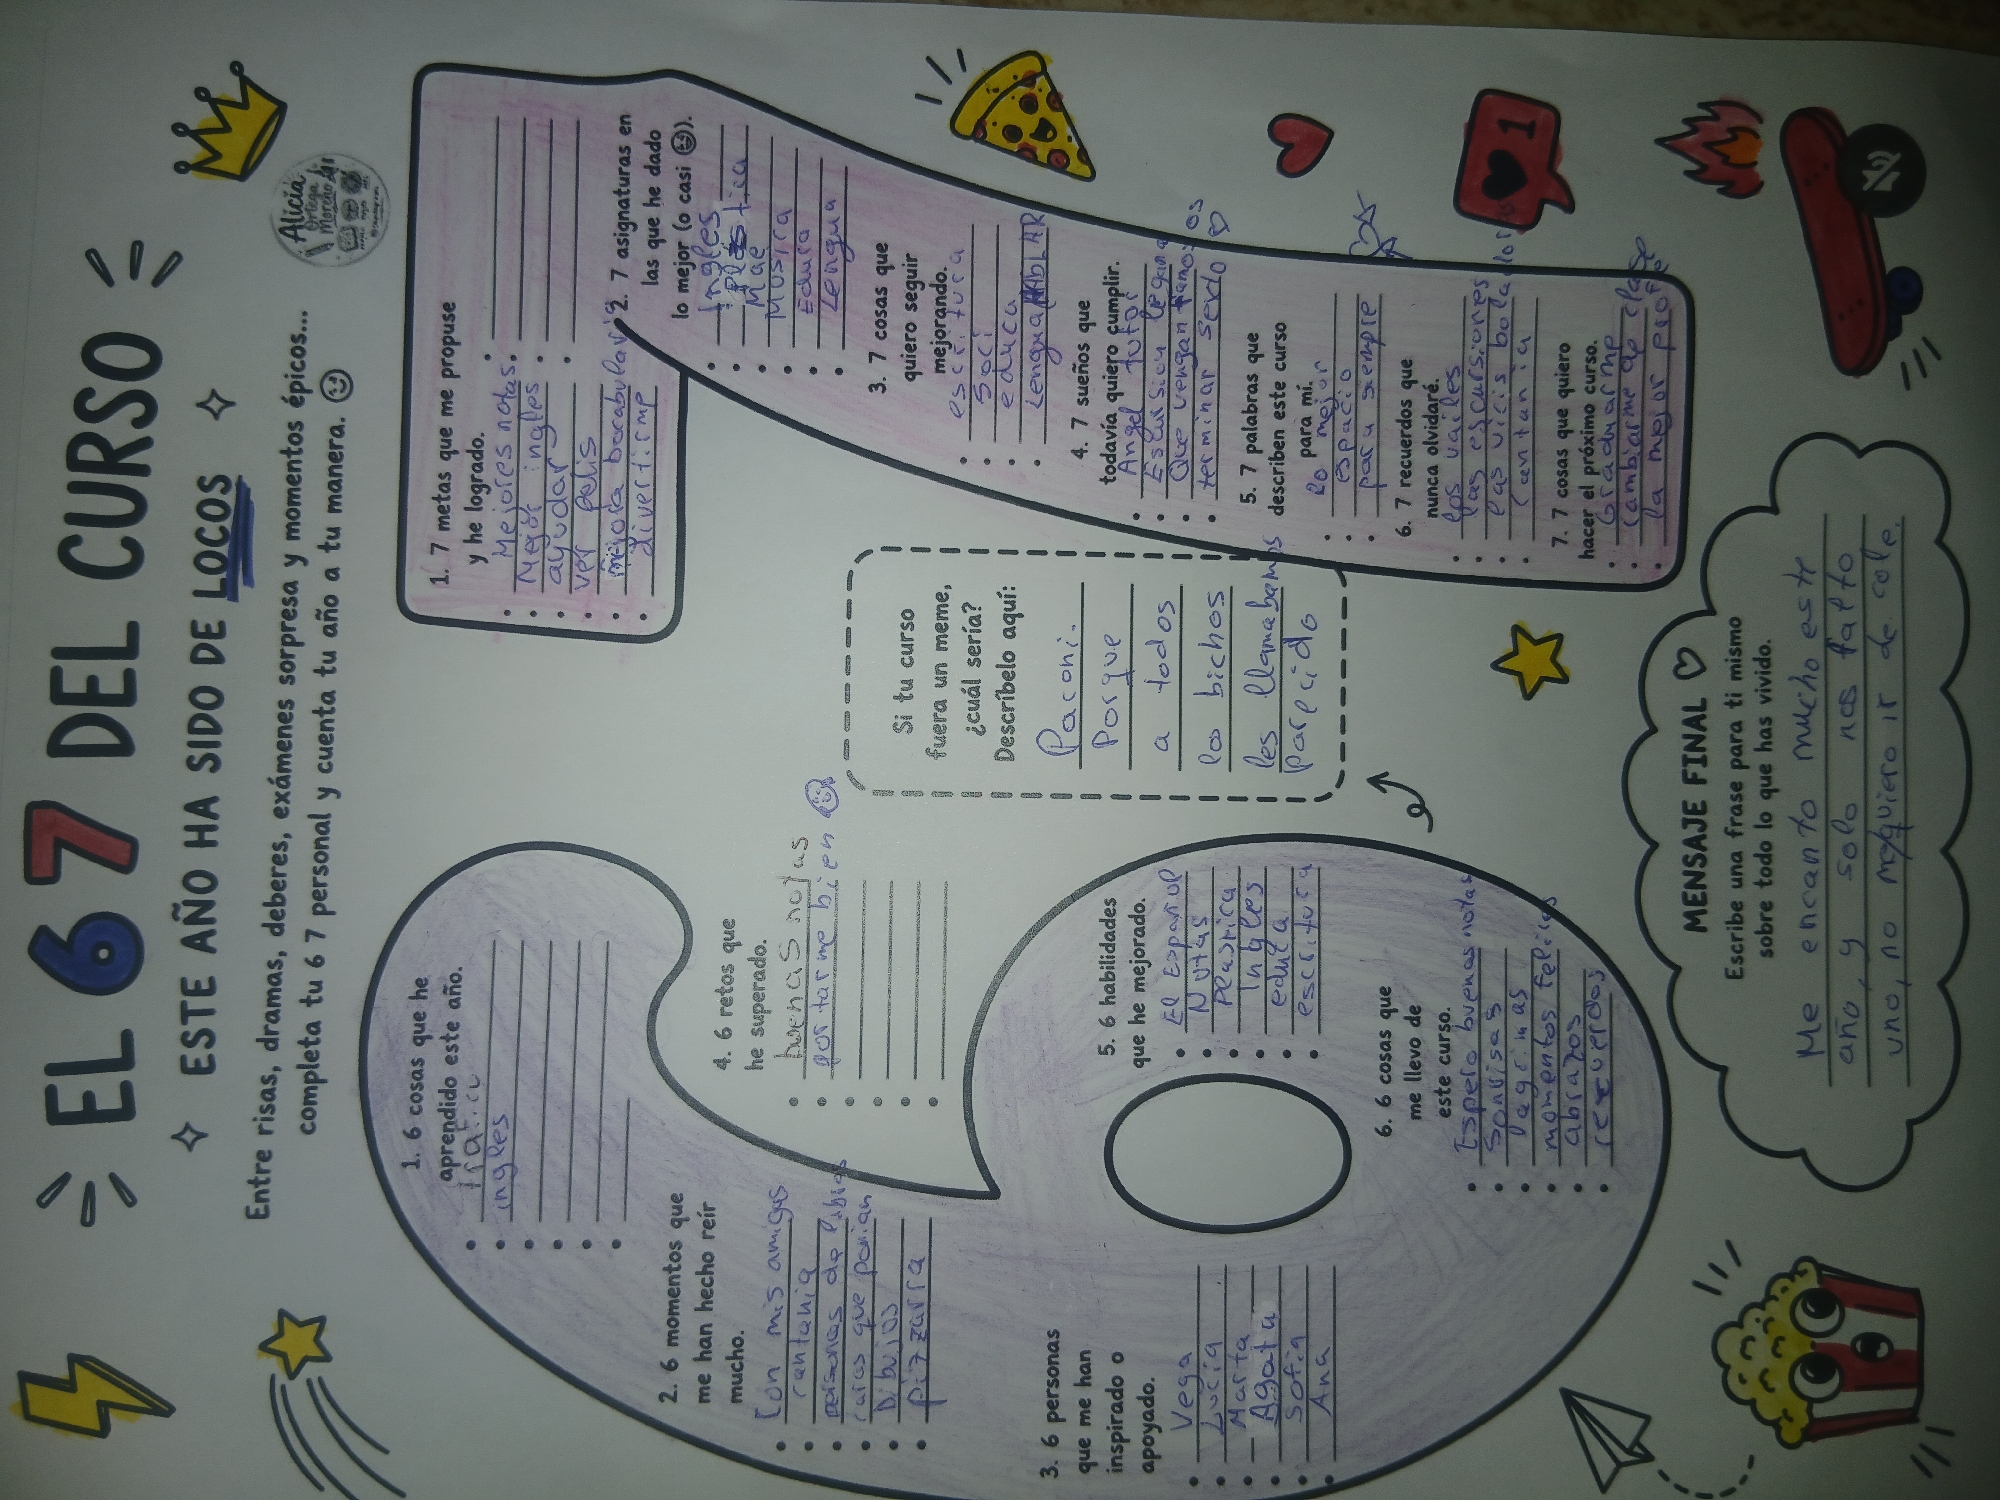 EL 67 DEL CURSO
ESTE AÑO HA SIDO DE LOCOS
Entre risas, dramas, deberes, exámenes sorpresa y momentos épicos...
completa tu 6 7 personal y cuenta tu año a tu manera.
Alicia
Ortega
Moreno
1. 6 cosas que he
aprendido este año.
ingles
2. 6 momentos que
me han hecho reír
mucho.
Con mis amigas
cantania
personas de
caras que ponian
Dibujos
pizzarra
3. 6 personas
que me han
inspirado o
apoyado.
Vega
Lucía
Marta
Agata
Sofia
Ana
4. 6 retos que
he superado.
buenas notas
portarme bien
5. 6 habilidades
que he mejorado.
El español
Notas
Plastica
Ingles
educa
escritura
6. 6 cosas que
me llevo de
este curso.
Espero buenas notas
Sonrisas
Paginas
momentos felices
abrazos
recuerdos
1. 7 metas que me propuse
y he logrado.
Mejores notas.
Mejor ingles
ayudar
ver pelis
divertirme
2. 7 asignaturas en
las que he dado
lo mejor (o casi).
Ingles
Plastica
Mae
Musica
Educa
Lengua
3. 7 cosas que
quiero seguir
mejorando.
escritura
Soci
educa
Lengua
4. 7 sueños que
todavía quiero cumplir.
Angel tutor
Que vengan
terminar sexto
5. 7 palabras que
describen este curso
para mí.
Lo mejor
espacio
para siempre
6. 7 recuerdos que
nunca olvidaré.
los vailes
las escursiones
las vicis
Cantania
7. 7 cosas que quiero
hacer el próximo curso.
Graduarme
Cambiarme de clase
la mejor profe
Si tu curso
fuera un meme,
¿cuál sería?
Descríbelo aquí:
Paconi.
Porque
a todos
los bichos
les llamabamos
parecido
1
MENSAJE FINAL
Escribe una frase para ti mismo
sobre todo lo que has vivido.
Me encanto mucho este
año, y solo nos falto
uno, no quiero ir de cole.